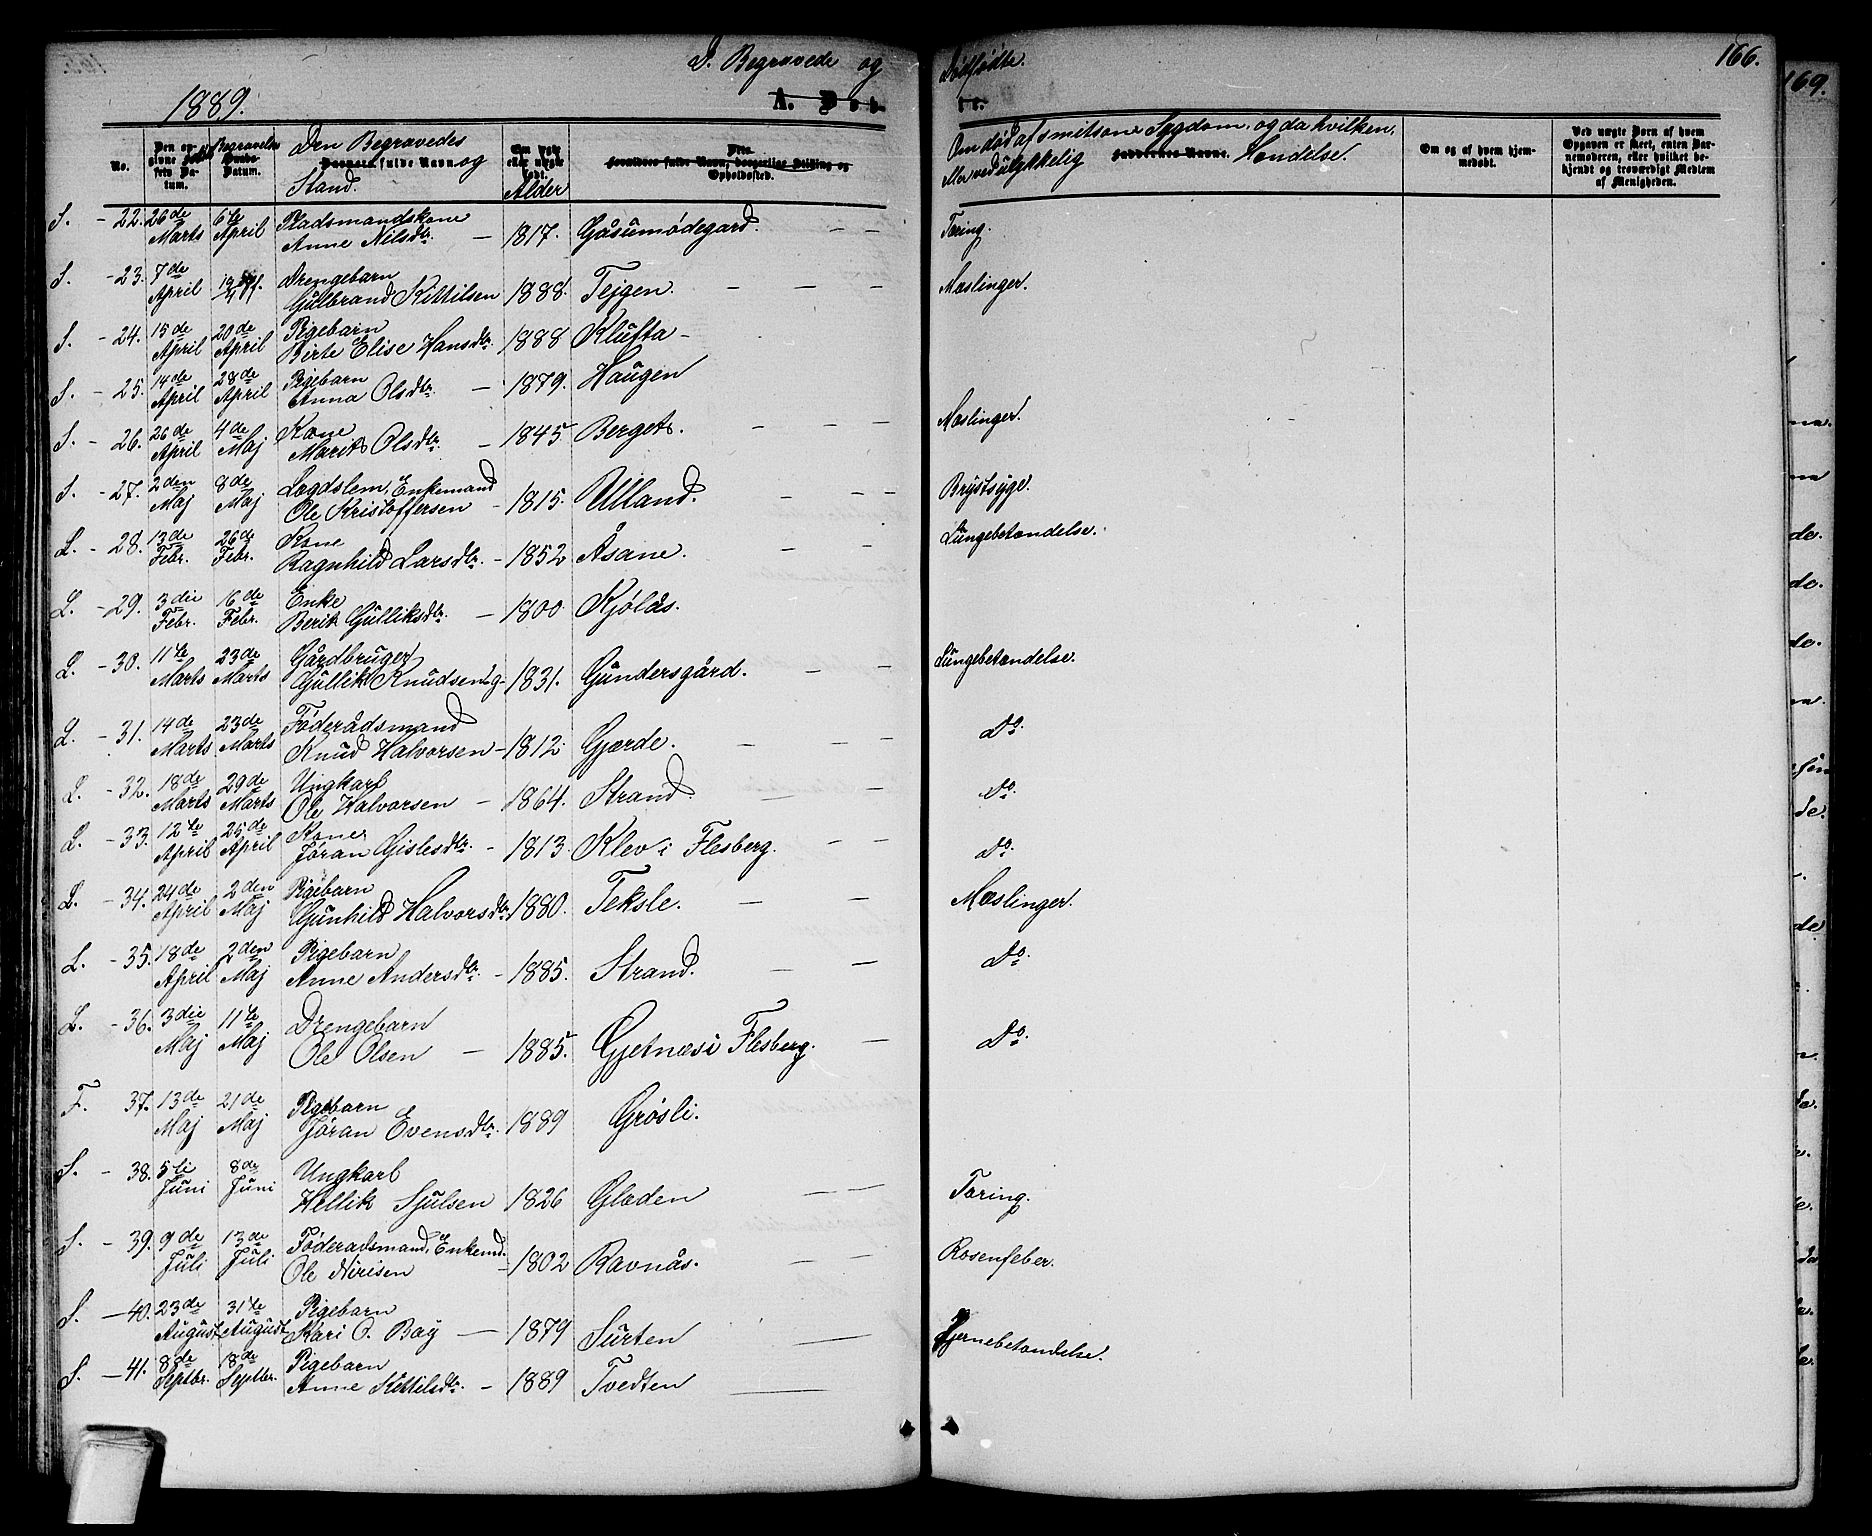 I. Begravede og Dödfödte.
166.
169.
1889.
A. Døb-
te.
No.
Den opgivne Fødsels Datum.
Begravelses
Daabs-Datum.
Den Begravedes
Barnets fulde Navn. og
Stand.
Om ægte eller uægte født.
Alder
Den
Forældres fulde Navn, borgerlige Stilling og Opholdssted.
Om død af smitsom Sygdom, og da hvilken,
eller ved ulykkelig Hændelse.
Faddernes Navne.
Om og af hvem hjemmedøbt.
Ved uægte Børn af hvem Opgaven er skeet, enten Barnemoderen, eller hvilket bekjendt og troværdigt Medlem af Menigheden.
S. - 22. 26de Marts 6te April Pladsmandskone Anne Nilsdtr. - 1817. Gåsumødegard. Tæring.
S. - 23. 7de April 19/4 Drengebarn Gulbrand Kittilsen 1888. Tejgen. Mæslinger.
S. - 24. 15de April 20de April Pigebarn Birte Elise Hansdtr. 1888 Klufta -
S. - 25. 14de April 28de April Pigebarn Anna Olsdtr. - 1879. Haugen
S. - 26. 26de April 4de Maj Kone Marit Olsdtr. - 1845 Berget. Mæslinger.
S. - 27. 2den Maj 8de Maj Lægdslem, Enkemand Ole Kristoffersen - 1815. Ulland. Brystsyge.
L. - 28. 13de Febr. 26de Febr. Kone Ragnhild Larsdtr. - 1852 Åsane. Lungebetændelse.
L. - 29. 3die Febr. 16de Febr. Enke Berit Gulliksdtr. - 1800 Kjölås.
L. - 30. 11te Marts 23de Marts Gårdbruger Gullik Knudsen g. 1831. Gundersgård. Lungebetændelse.
L. - 31. 14de Marts 23de Marts Föderådsmand Knud Halvorsen - 1812. Gjærde. Do.
L. - 32. 18de Marts 29de Marts Ungkarl Ole Halvorsen - 1864. Strand. Do.
L. - 33. 12te April 25de April Kone Jøran Gislesdtr. - 1813. Klev i Flesberg. Do.
L. - 34. 24de April 2den Maj Pigebarn Gunhild Halvorsdtr. 1880. Teksle. Mæslinger.
L. - 35. 18de April 2den Maj Pigebarn Anne Andersdtr. - 1885. Strand. Do.
L. - 36. 3die Maj 11te Maj Drengebarn Ole Olsen - 1885. Gjetnæs i Flesberg. Do.
F. 37. 13de Maj 21de Maj Pigebarn Jøran Evensdtr. 1889 Grøsli.
S. - 38. 5te Juni 8de Juni Ungkarl Hellik Sjulsen 1826 Glæden Tæring.
S. - 39. 9de Juli 13de Juli Föderadsmand, Enkemd. Ole Nirisen - 1802 Ravnås. Rosenfeber.
S. - 40. 23de August 31te August Pigebarn Kari O. Bay - 1879 Surten Hjernebetændelse.
S. - 41. 8de Septbr. 18de Septbr. Pigebarn Anne Kittilsdtr. - 1889 Tvedten